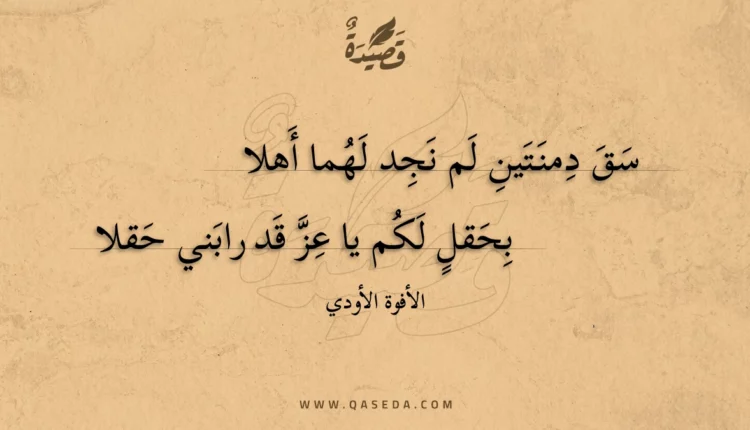 قَصِيدَةٌ
سَقَ دِمنَتَينِ لَم نَجِد لَهُما أَهلا
بِحَقلٍ لَكُم يا عِزَّ قَد رابَني حَقلا
الأفوة الأودي
WWW.QASEDA.COM